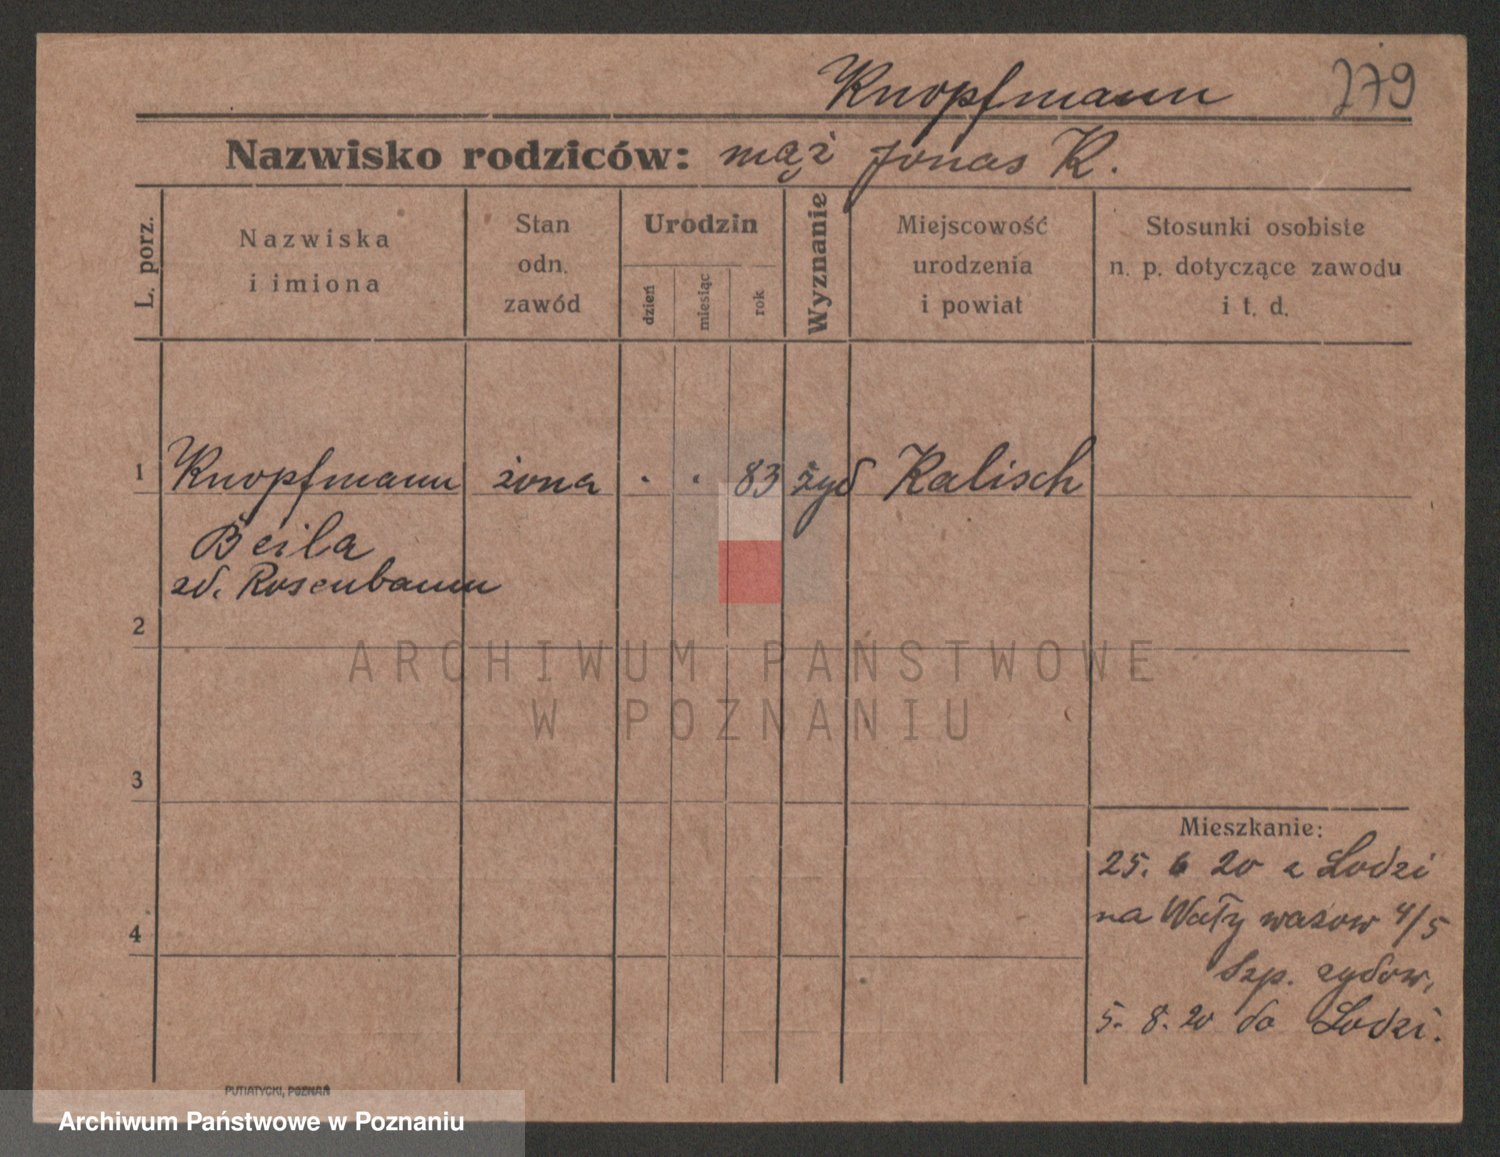 Knopfmann 279
Nazwisko rodziców: mąż Jonas K.
L. porz.
Nazwiska
i imiona
Stan
odn.
zawód
Urodzin
dzień
miesiąc
rok
Wyznanie
Miejscowość
urodzenia
i powiat
Stosunki osobiste
n. p. dotyczące zawodu
i t. d.
1 Knopfmann żona . . 83 żyd Kalisch
Beila
zd. Rosenbaum
2
3
4
Mieszkanie:
25. 6 20 z Lodzi
na Wały wazow 4/5
Szp. zydow.
5. 8. 20 do Lodzi.
PUTIATYCKI, POZNAŃ
ARCHIWUM PAŃSTWOWE
W POZNANIU
Archiwum Państwowe w Poznaniu